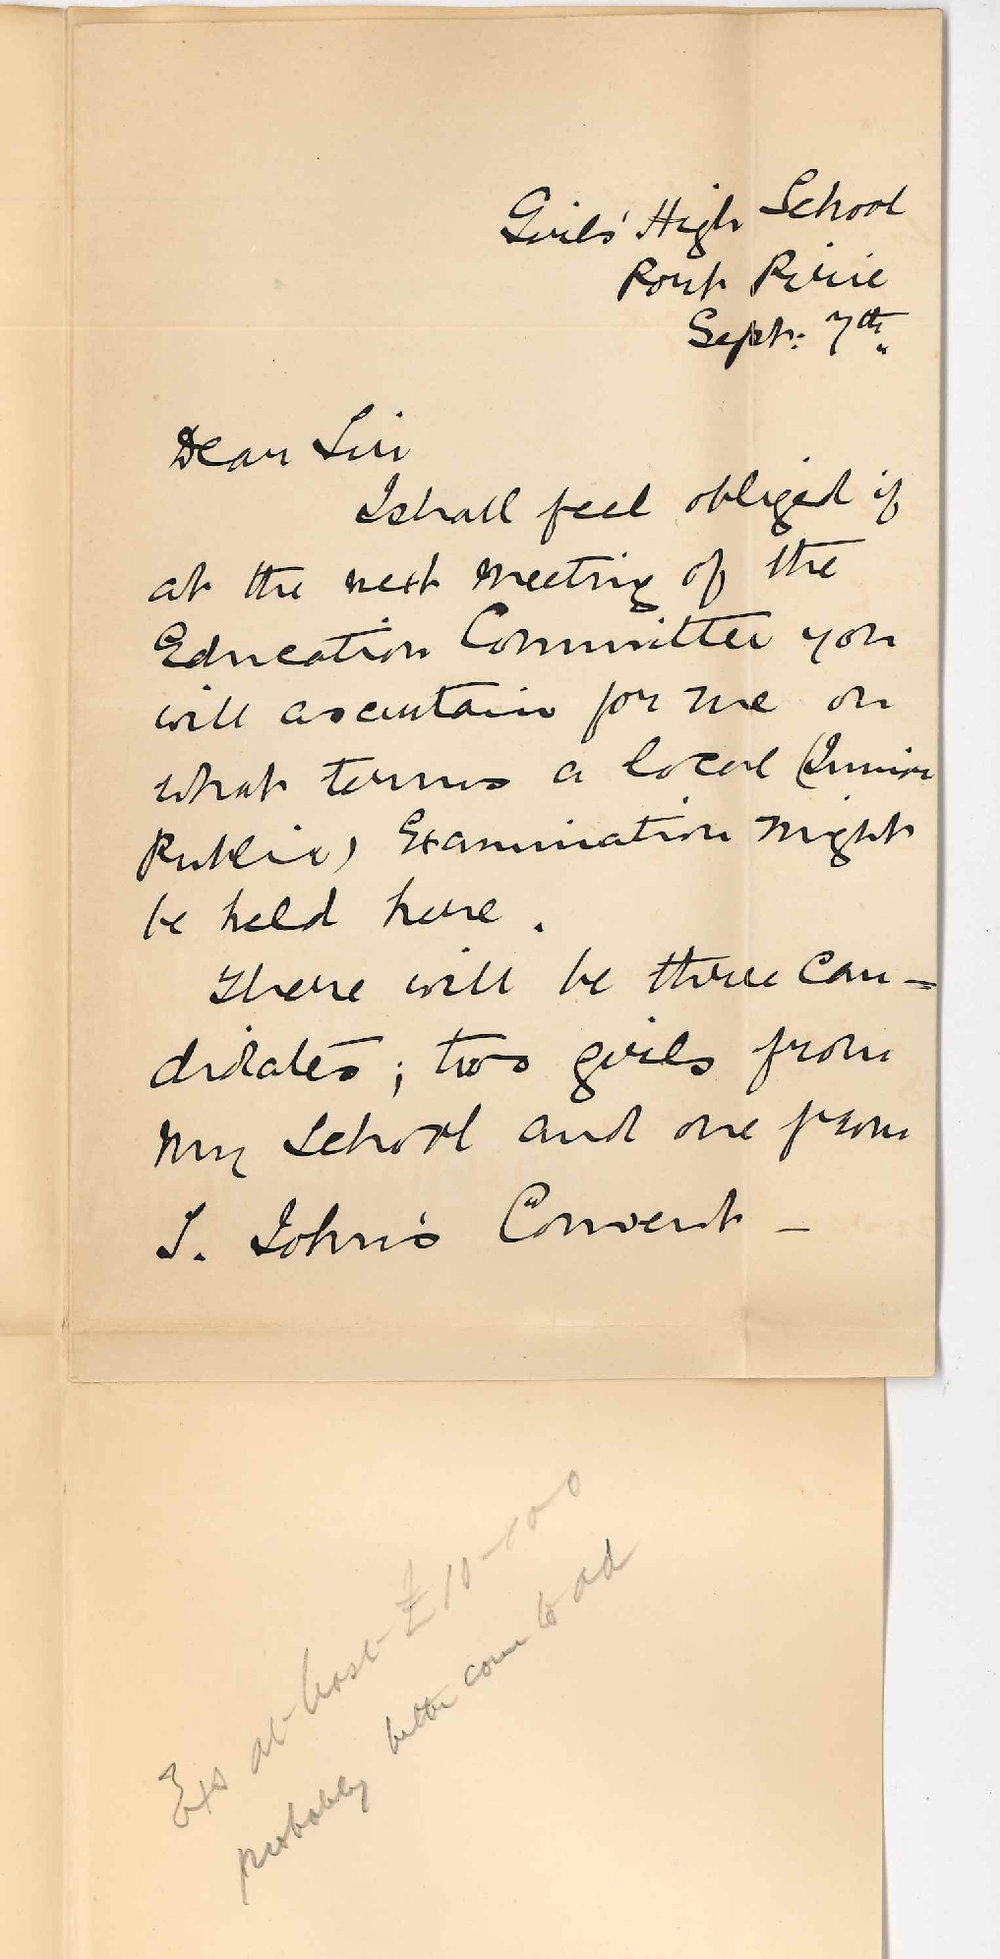 Girls' High School
Port Pirie
Sept: 7th.
Dear Sir
I shall feel obliged if
at the next meeting of the
Education Committee you
will ascertain for me on
what terms a local (Junior
Public) Examination might
be held here.
There will be three can-
didates; two girls from
my School and one from
S. John's Convent –
Exs at least £10-10 0
probably better come to ad